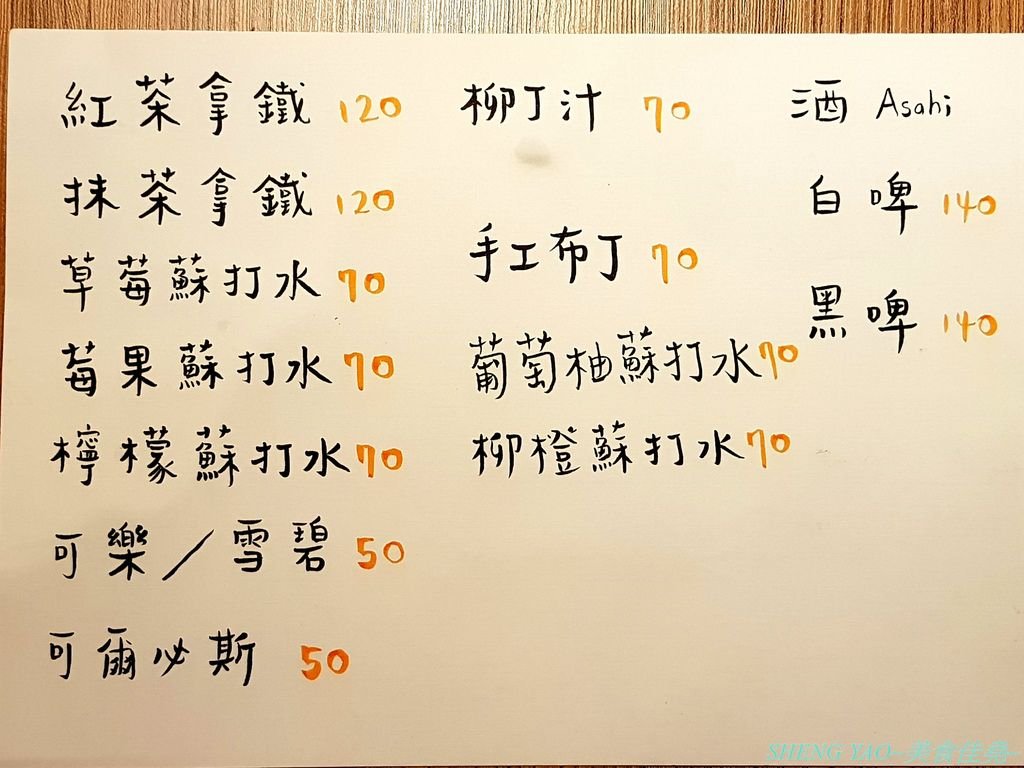 紅茶拿鐵 120
抹茶拿鐵 120
草莓蘇打水 70
莓果蘇打水 70
檸檬蘇打水 70
可樂／雪碧 50
可爾必斯 50
柳丁汁 70
手工布丁 70
葡萄柚蘇打水 70
柳橙蘇打水 70
酒 Asahi
白啤 140
黑啤 140
SHENG YAO~美食佳